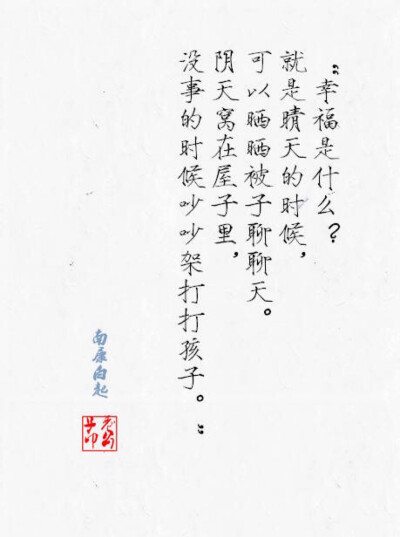 “幸福是什么？
就是晴天的时候，
可以晒晒被子聊聊天。
阴天窝在屋子里，
没事的时候吵吵架打打孩子。”
南康白起